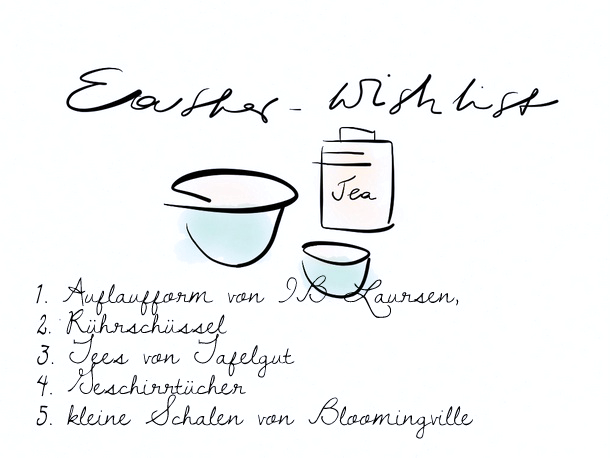 Easter - Wishlist
Tea
1. Auflaufform von IB Laursen,
2. Rührschüssel
3. Tees von Tafelgut
4. Geschirrtücher
5. kleine Schalen von Bloomingville